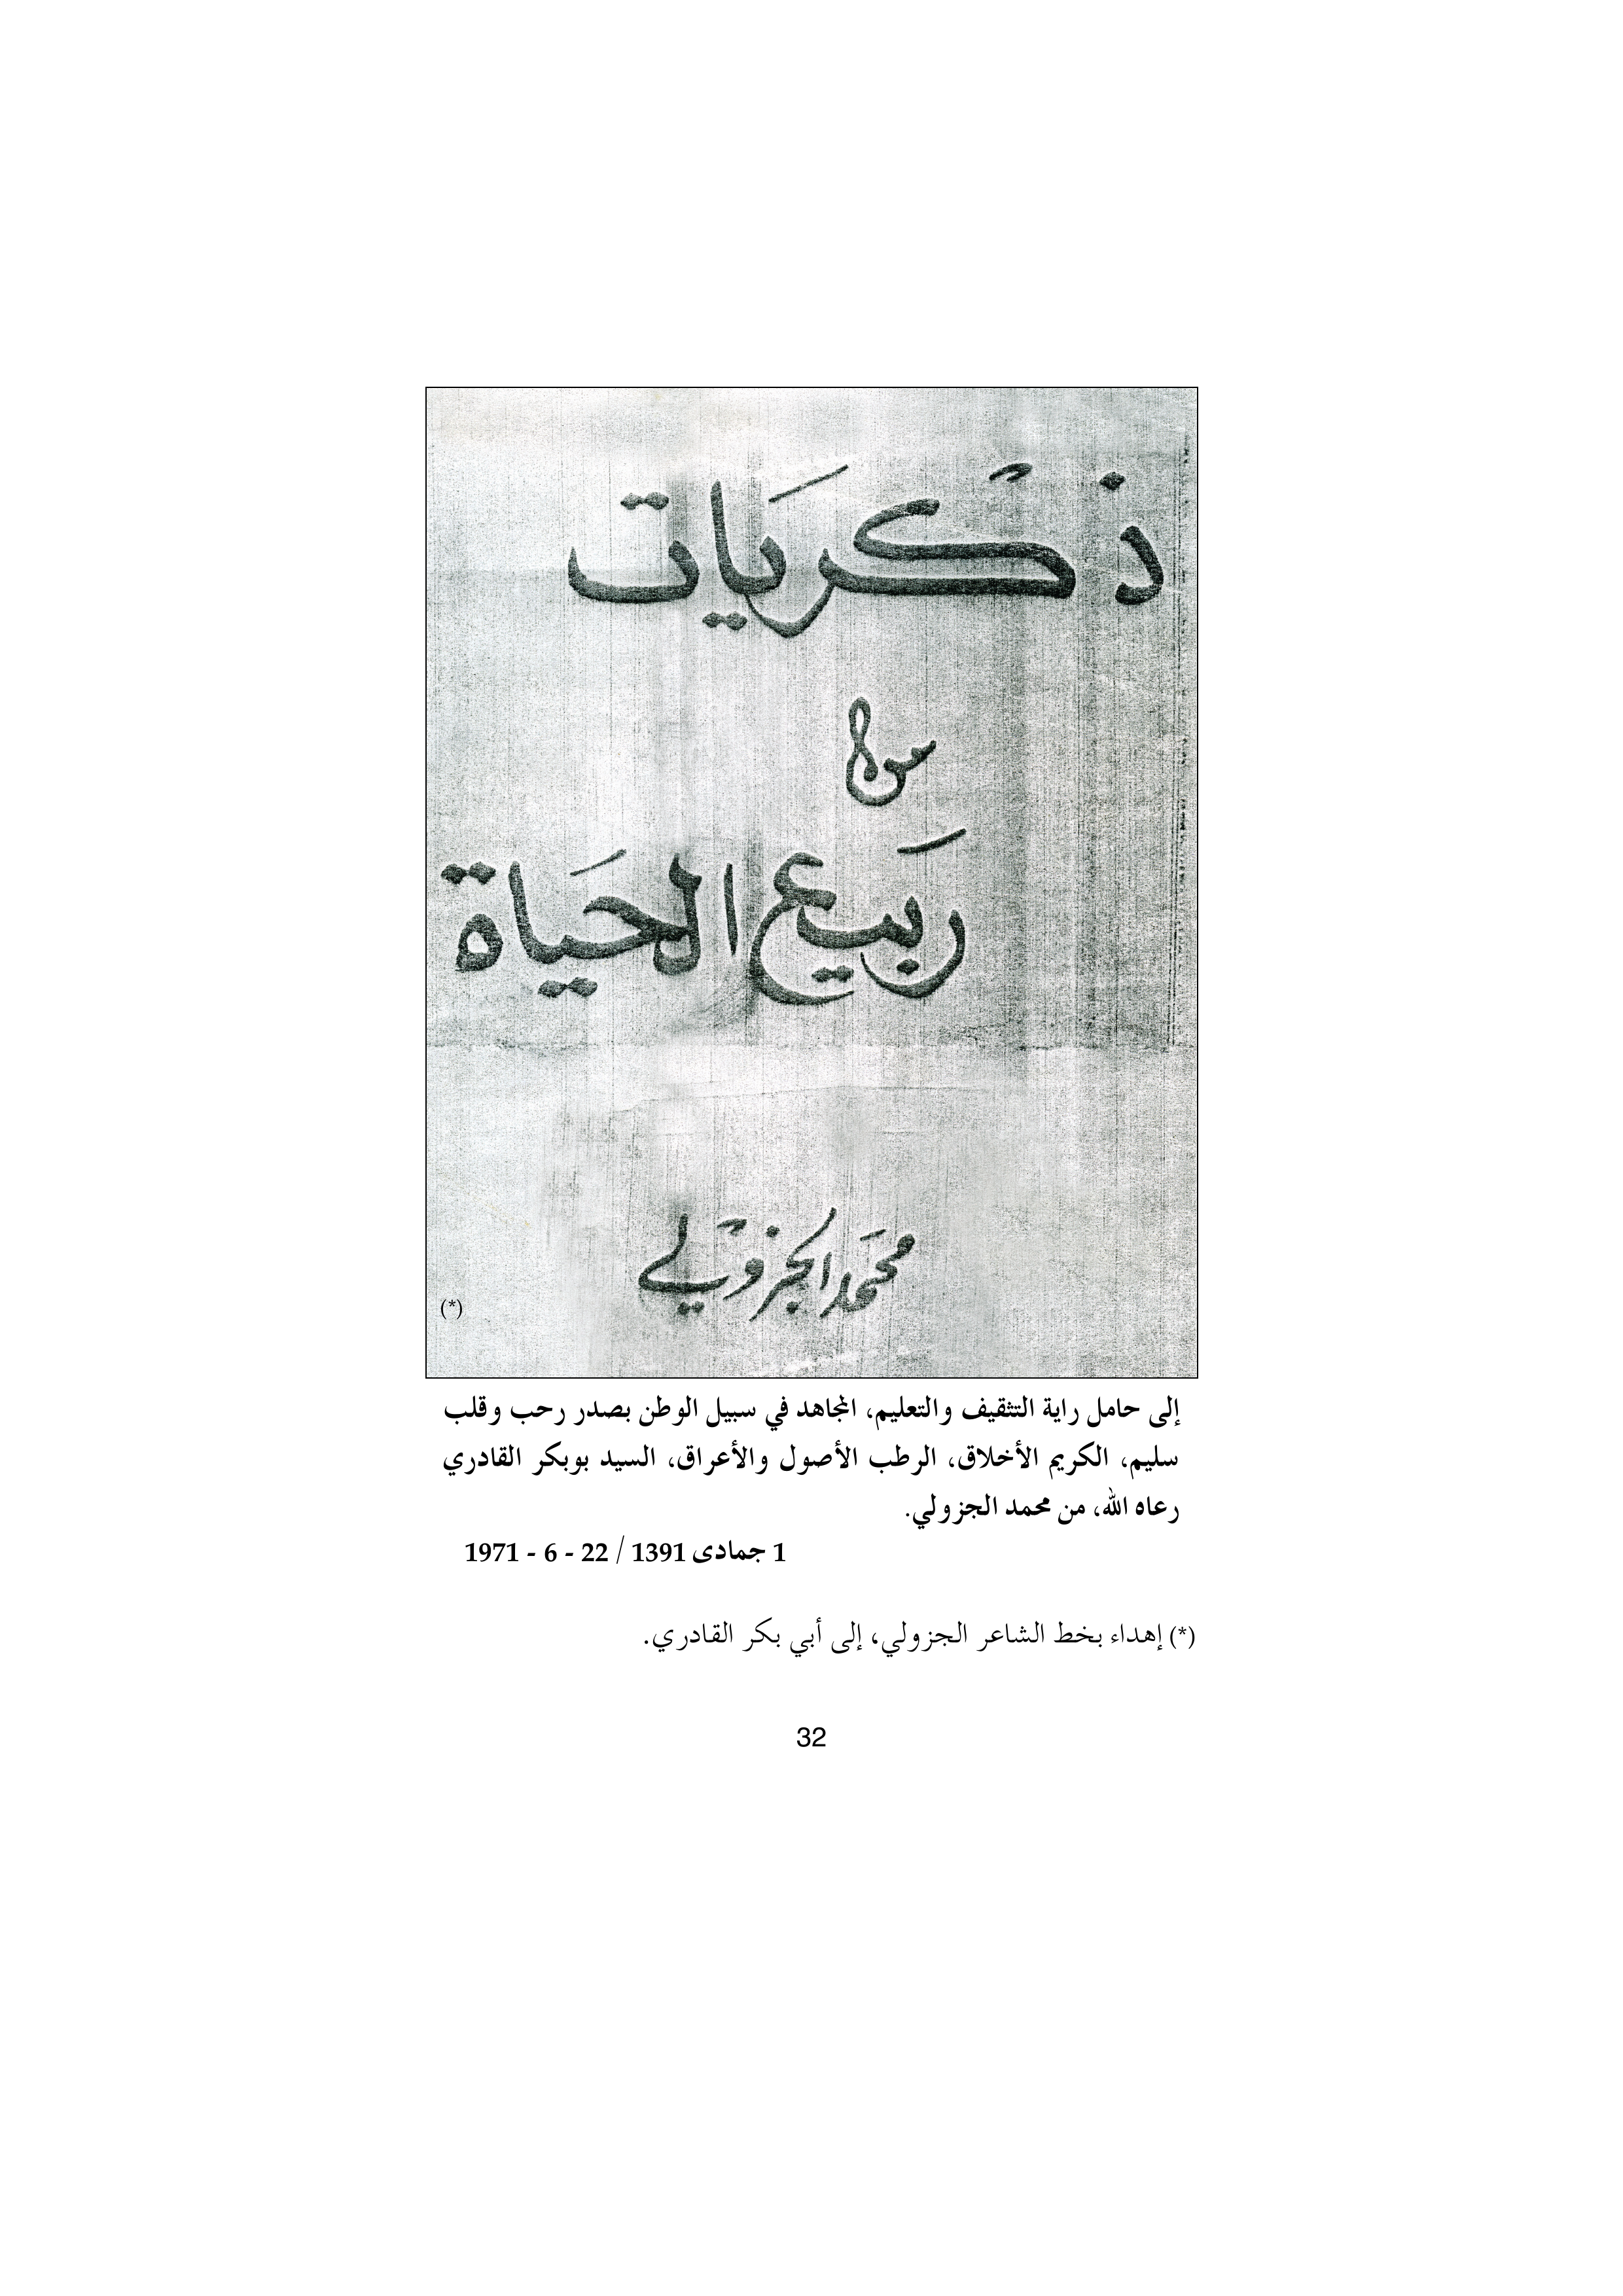 ذكْريَات
من
رَبيع الحَياة
محَمد الجزوْلي
(*)
إلى حامل راية التثقيف والتعليم، المجاهد في سبيل الوطن بصدر رحب وقلب
سليم، الكريم الأخلاق، الرطب الأصول والأعراق، السيد بوبكر القادري
رعاه الله، من محمد الجزولي.
1 جمادى 1391 / 22 - 6 - 1971
(*) إهداء بخط الشاعر الجزولي، إلى أبي بكر القادري.
32